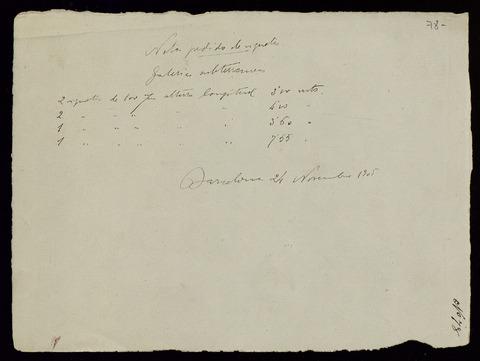 78-
Nota pedido de viguetas
Galerias subterraneas
2 viguetas de 100 m/m altura longitud 3'00 mts.
2 " " " " " 4'00 "
1 " " " " " 3'60 "
1 " " " " " 7'55 "
Barcelona 24 Novembre 1905